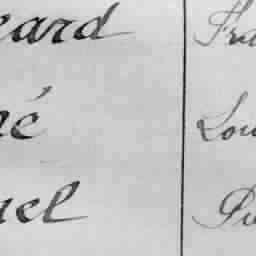 eard Fra
né Lou
uel Pi